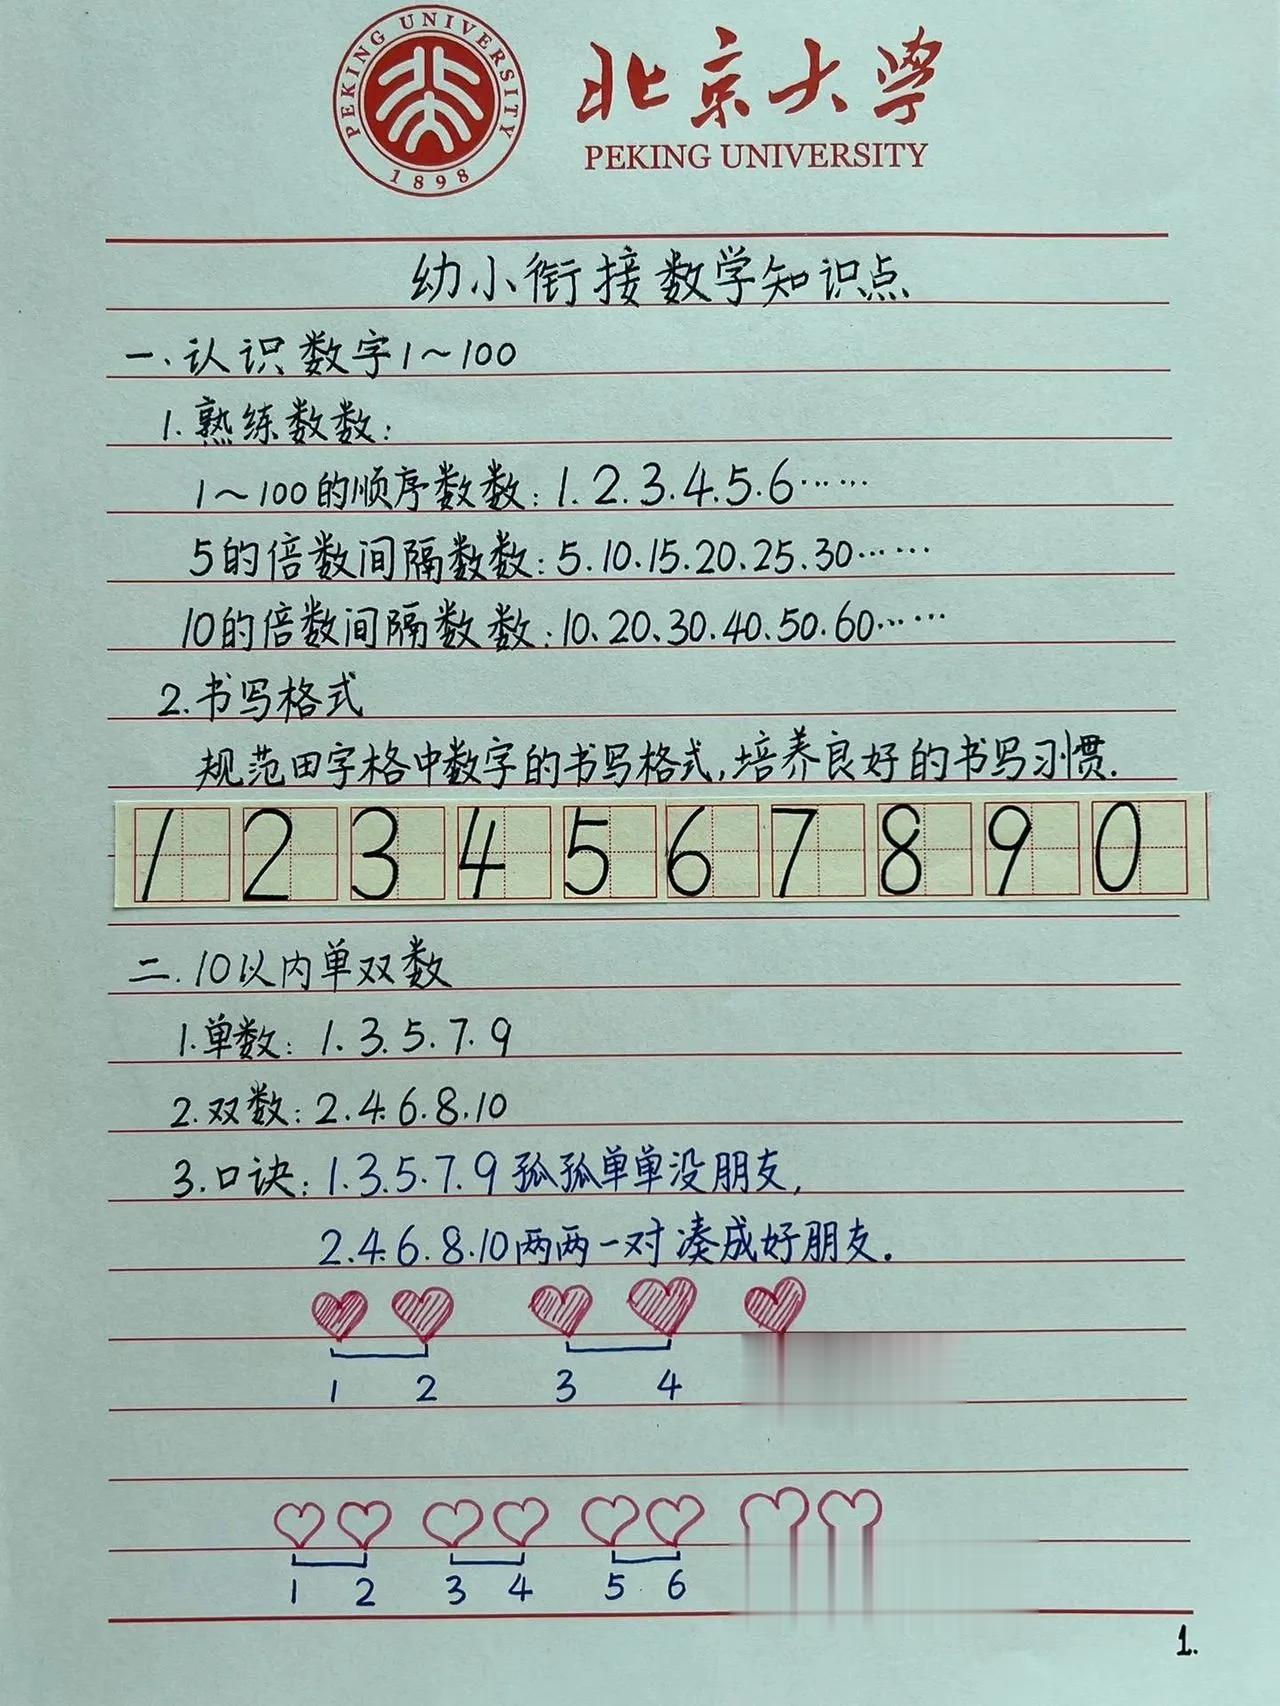 PEKING UNIVERSITY
1898
北京大学
PEKING UNIVERSITY
幼小衔接数学知识点
一、认识数字1~100
1.熟练数数:
1~100的顺序数数:1.2.3.4.5.6……
5的倍数间隔数数:5.10.15.20.25.30……
10的倍数间隔数数:10、20、30.40.50.60……
2.书写格式
规范田字格中数字的书写格式,培养良好的书写习惯.
1 2 3 4 5 6 7 8 9 0
二.10以内单双数
1.单数:1.3.5.7.9
2.双数:2.4.6.8.10
3.口诀:1.3.5.7.9孤孤单单没朋友,
2.4.6.8.10两两一对凑成好朋友.
1 2 3 4
1 2 3 4 5 6
1.